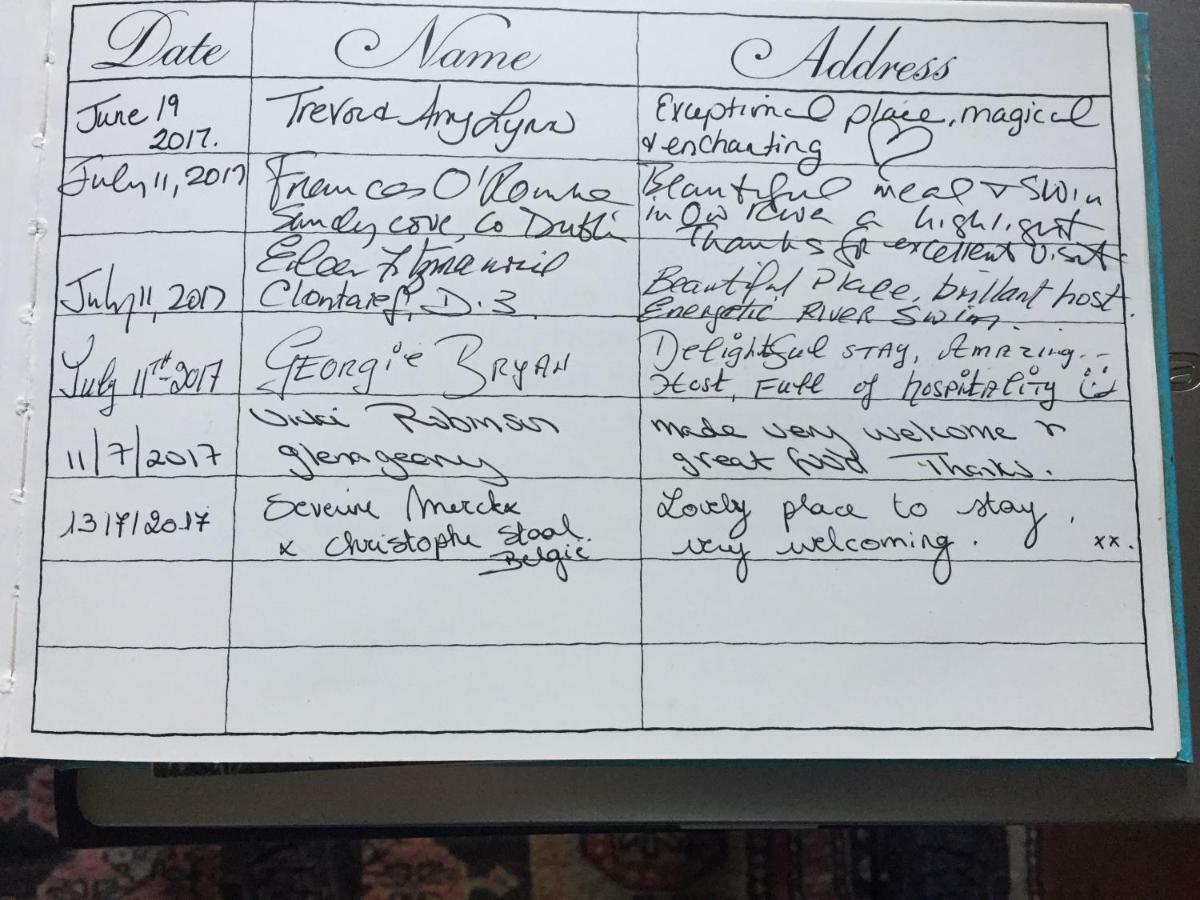 Date Name Address
June 19
2017.
Trevor & Amy Lynn
Exceptional place, magical
& enchanting
July 11, 2017
Frances O'Rourke
Sandycove, Co Dublin
Beautiful meal & swim
in river a highlight
Thanks for excellent visit
July 11, 2017
Fitzmaurice
Clontarf, D.3.
Beautiful Place, brillant host.
Energetic River Swim.
July 11th 2017
Georgie Bryan
Delightful stay, Amazing...
Host, Full of hospitality
11/7/2017
Vicki Robinson
glenageary
made very welcome &
great food Thanks.
13/7/2017
Severine Merckx
& Christophe Staal.
Belgie
Lovely place to stay,
very welcoming. xx.